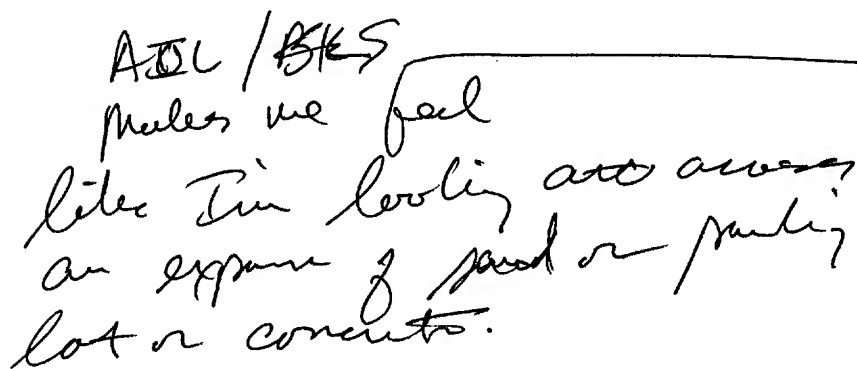 AOL / BKS
makes me feel
like I'm looking across
an expanse of sand or parking
lot or concrete.